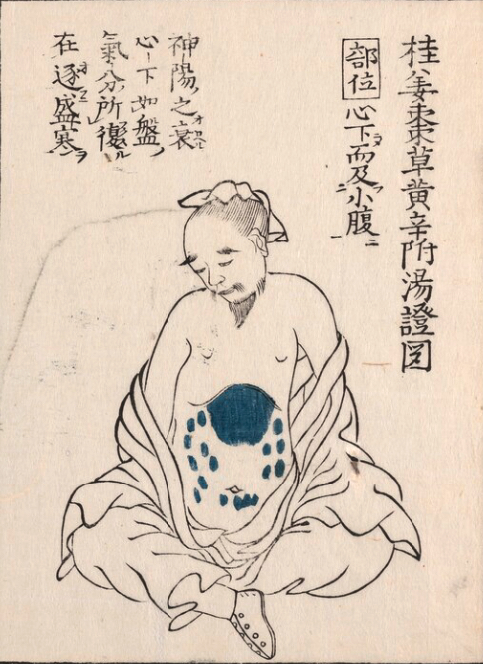 桂姜棗草黄辛附湯證図
部位 心下而及小腹
神陽之衰
心下如盤
氣分所復ル
在逐盛寒ヲ